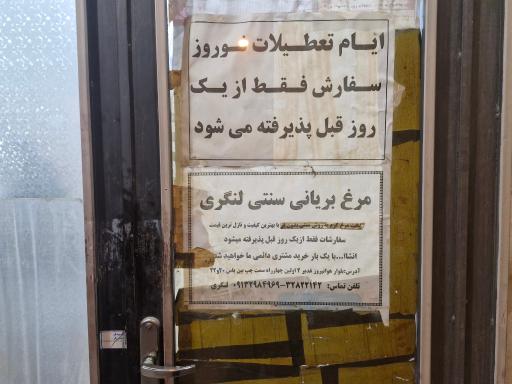 ایام تعطیلات نوروز
سفارش فقط از یک
روز قبل پذیرفته می شود
مرغ بریانی سنتی لنگری
با بهترین کیفیت و نازل ترین قیمت
سفارشات فقط ازیک روز قبل پذیرفته میشود
انشاا...با یک بار خرید مشتری دائمی ما خواهید شد
آدرس:بلوار هوانیروز غدیر ۲ اولین چهارراه سمت چپ بین پلاس ۲۰و۲۲
تلفن تماس: ۳۲۸۲۲۱۴۲-۰۹۱۳۲۹۸۴۹۶۹ لنگری